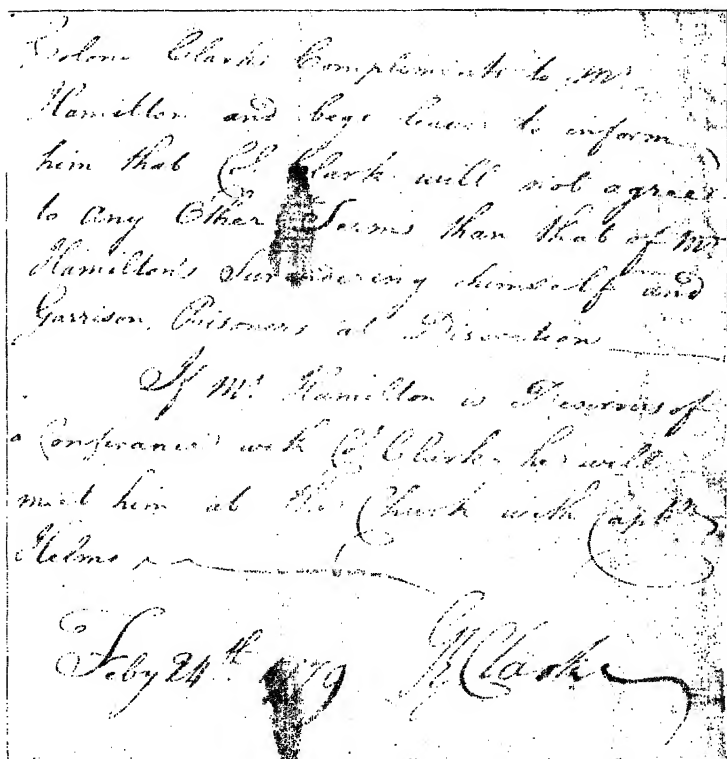 Colone Clarks Compliments to Mr
Hamilton and begs leave to inform
him that Col Clark will not agree
to any Other Terms than that of Mr
Hamilton's Surendering himself and
Garrison, Prisoners at Discretion
If Mr Hamilton is Desirous of
a Conferance with Col Clark he will
meet him at the Church with Captn
Helms
Feby 24th 1779 G R Clark